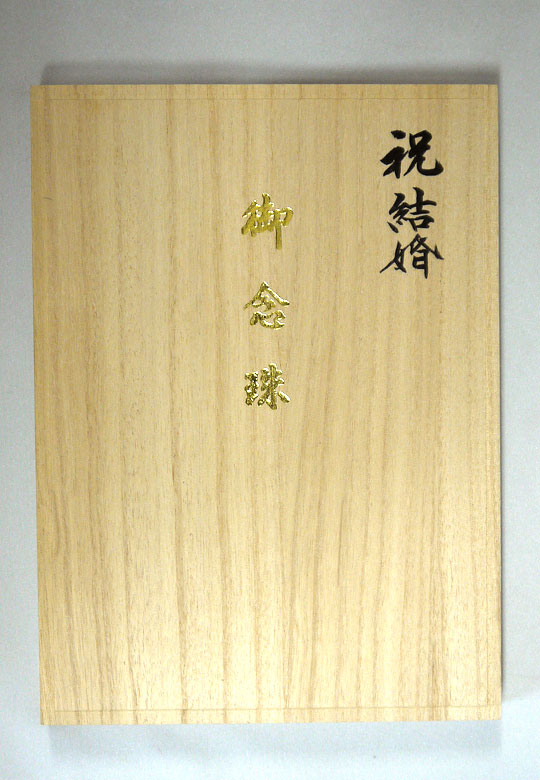 祝結婚
御念珠